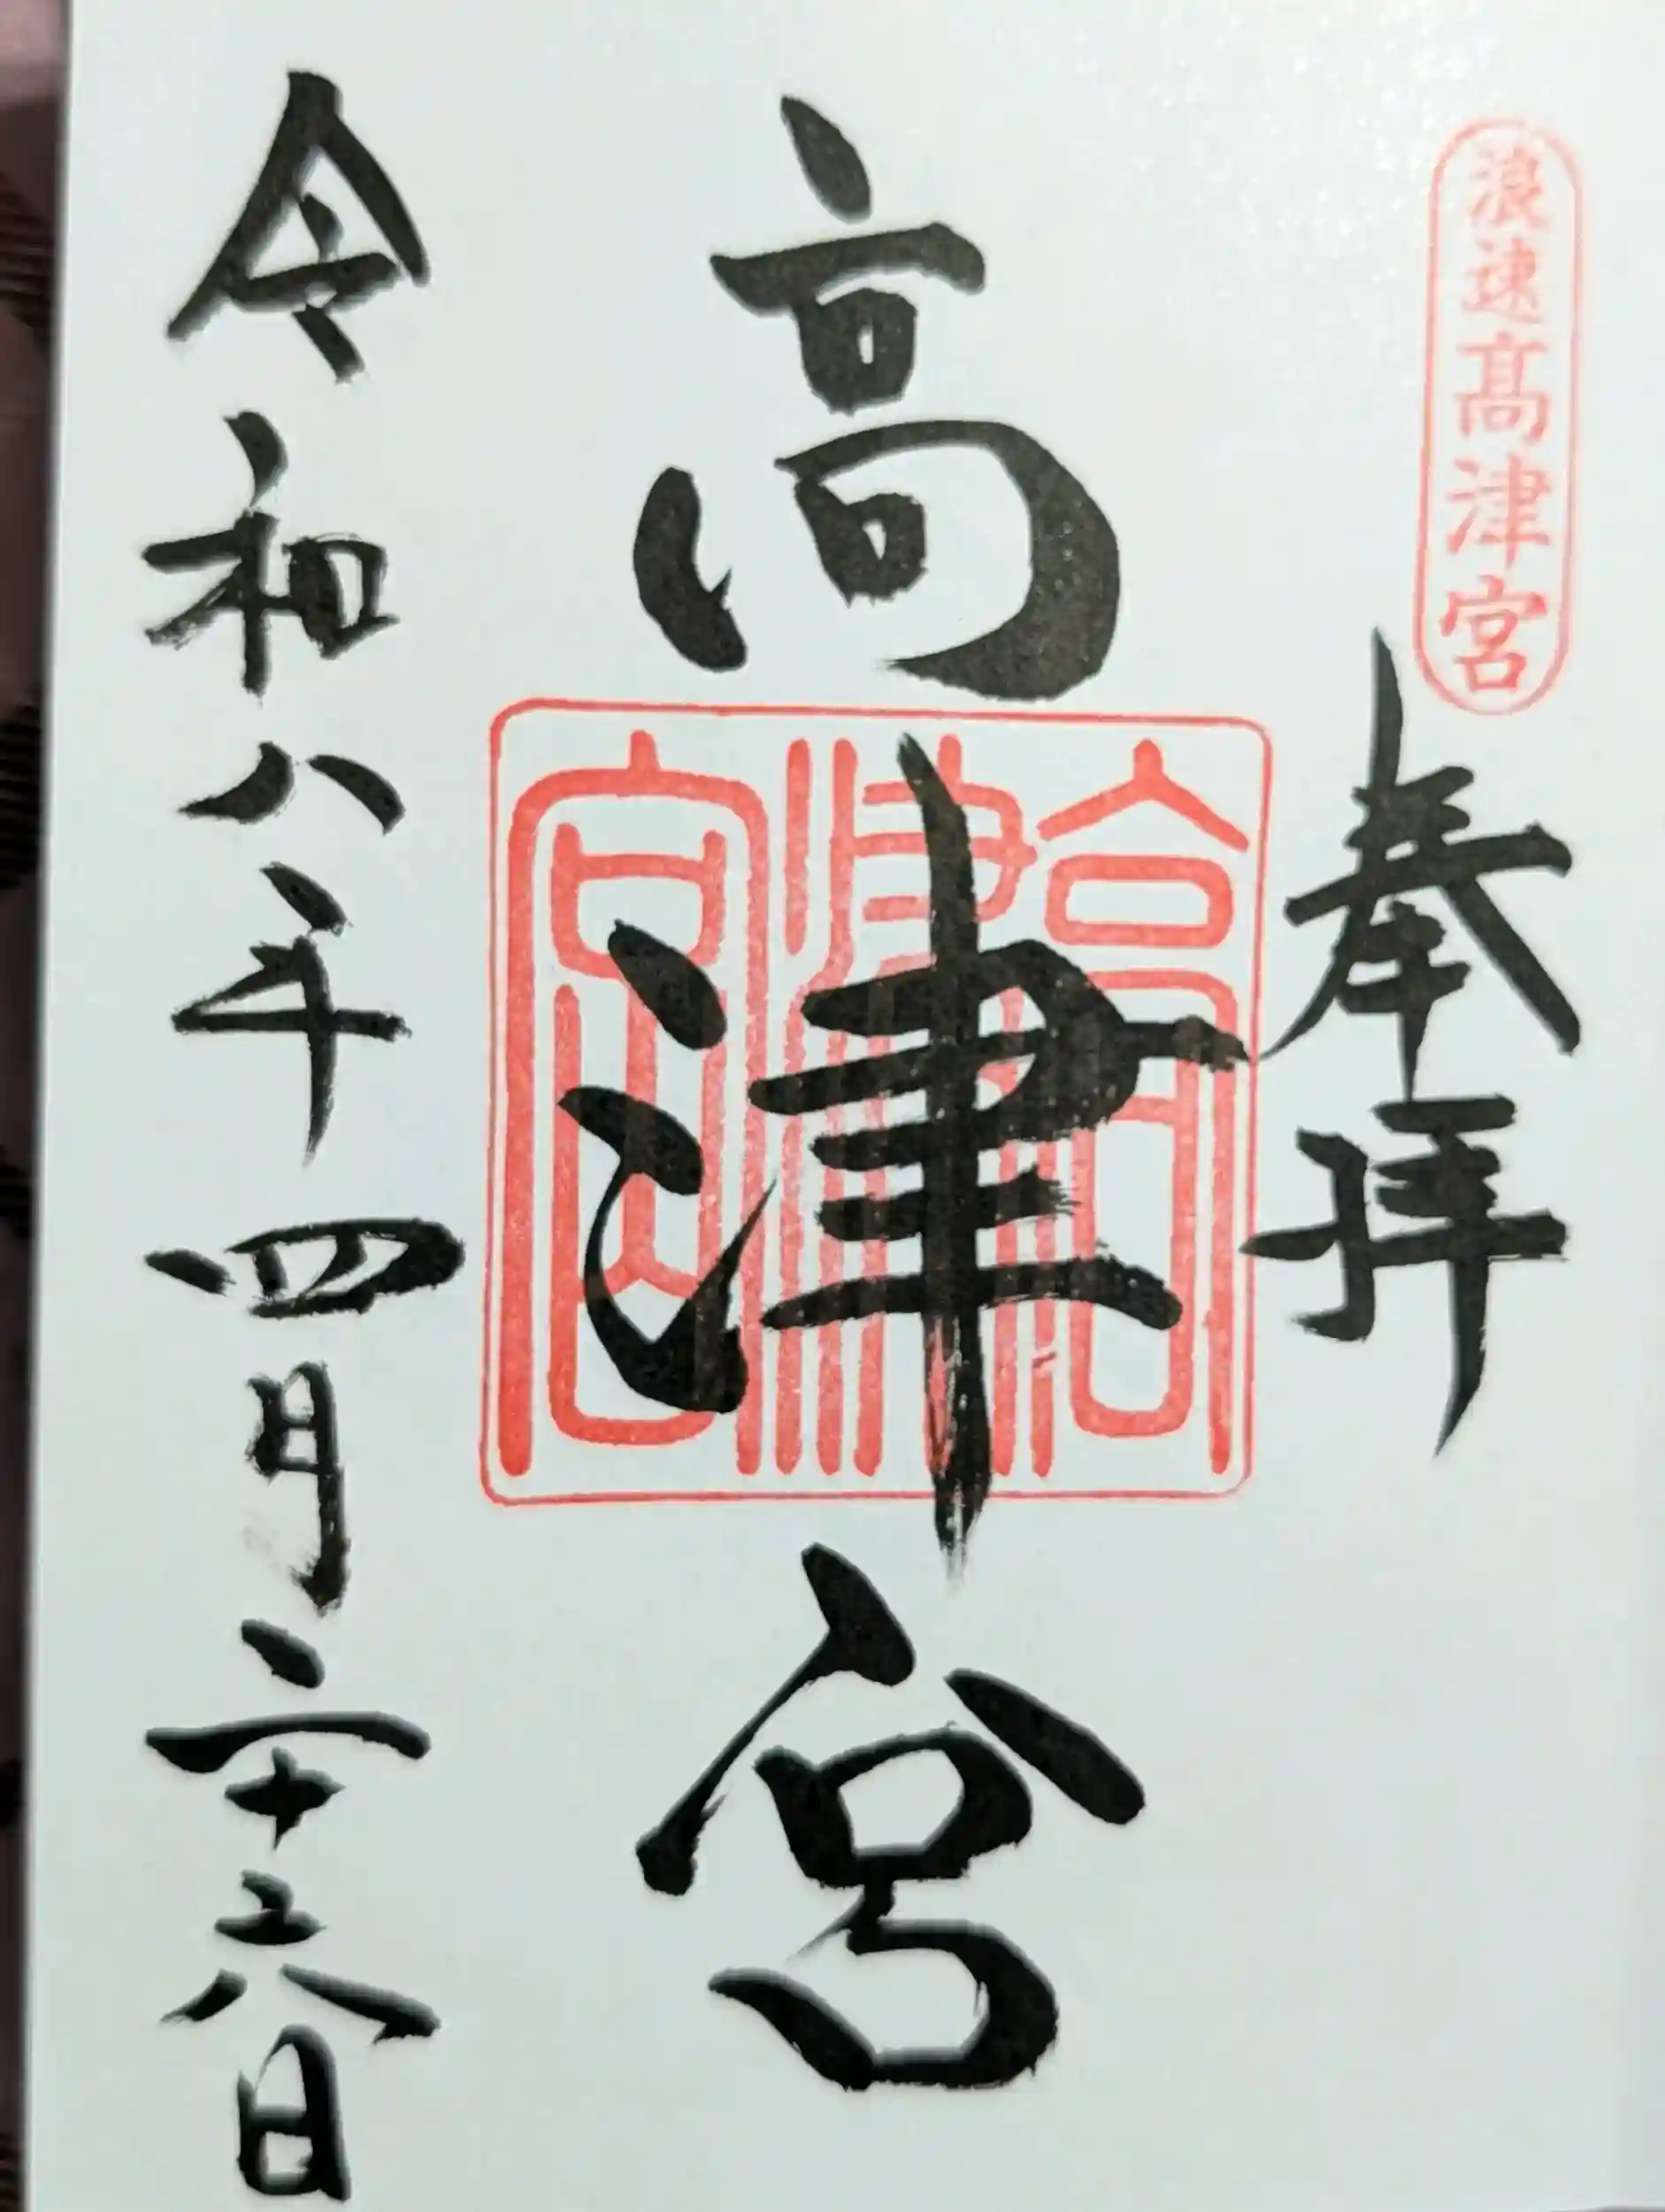 浪速髙津宮
奉拝
高津宮
高津宮
令和八年四月二十六日